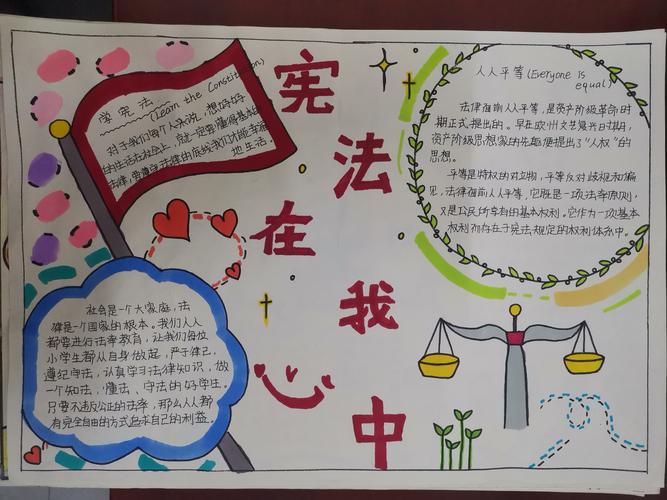 宪法在我心中
学宪法
(Learn the Constitution)
对于我们每个人来说，想好好
的生活在社会上，就一定要懂得基本的
法律，要遵守法律的底线我们才能幸福
地生活。
社会是一个大家庭，法
律是一个国家的根本。我们人人
都要进行法率教育，让我们每位
小学生都从自身做起，严于律己，
遵纪守法，认真学习法律知识，做
一个知法、懂法、守法的好学生。
只要不违反公正的法率，那么人人都
有完全自由的方式追求自己的利益。
人人平等(Everyone is
equal)
法律面前人人平等，是资产阶级革命时
期正式提出的。早在欧州文艺复兴时期，
资产阶级思想家的先驱便提出了"人权"的
思想。
平等是特权的对立物，平等反对歧视和偏
见，法律面前人人平等，它既是一项法率原则，
又是公民所享有的基本权利。它作为一项基本
权利而存在于宪法规定的权利体系中。